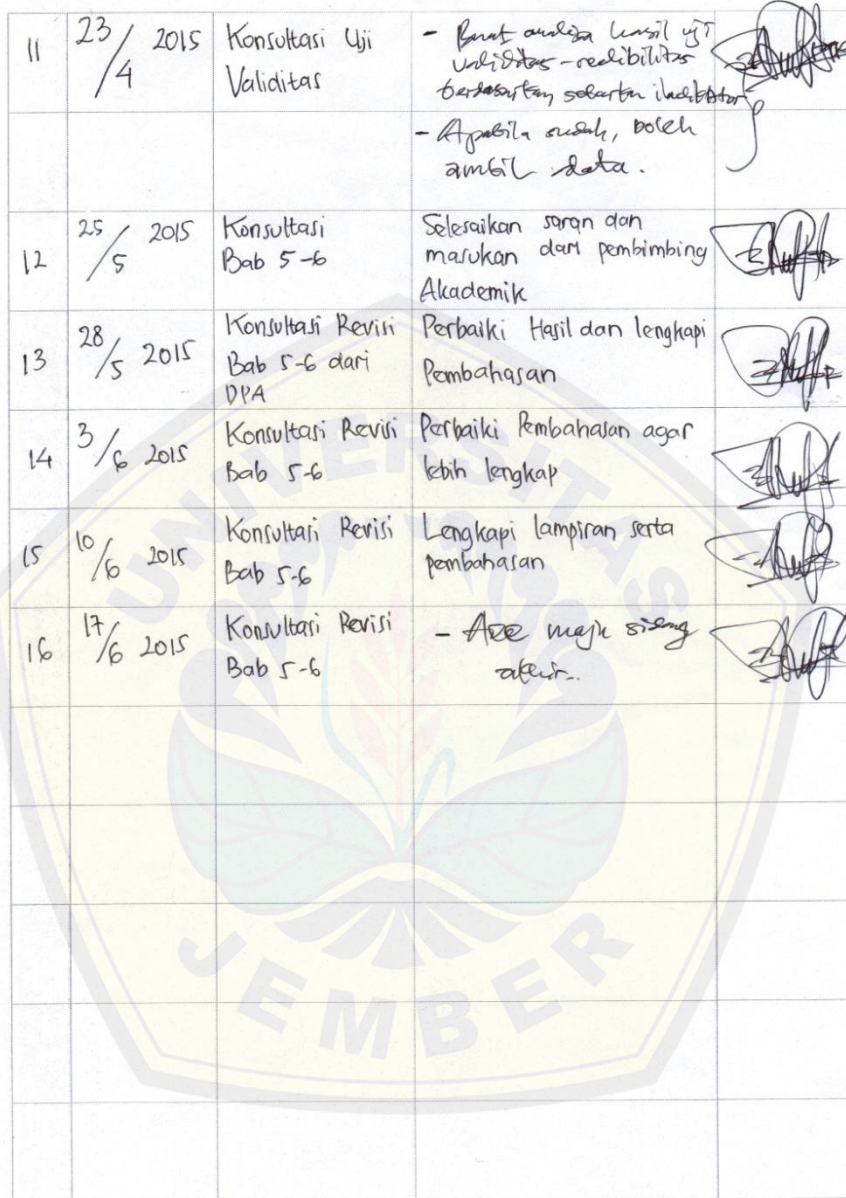 11 23/4 2015 Konsultasi Uji - Buat analisa hasil uji
Validitas validitas-realibilitas
berdasarkan sebaran indikator
- Apabila sudah, boleh
ambil data.
12 25/5 2015 Konsultasi Selesaikan saran dan
Bab 5-6 masukan dari pembimbing
Akademik
13 28/5 2015 Konsultasi Revisi Perbaiki Hasil dan lengkapi
Bab 5-6 dari Pembahasan
DPA
14 3/6 2015 Konsultasi Revisi Perbaiki Pembahasan agar
Bab 5-6 lebih lengkap
15 10/6 2015 Konsultasi Revisi Lengkapi lampiran serta
Bab 5-6 pembahasan
16 17/6 2015 Konsultasi Revisi - Acc maju sidang
Bab 5-6 akhir..
UNIVERSITAS
JEMBER